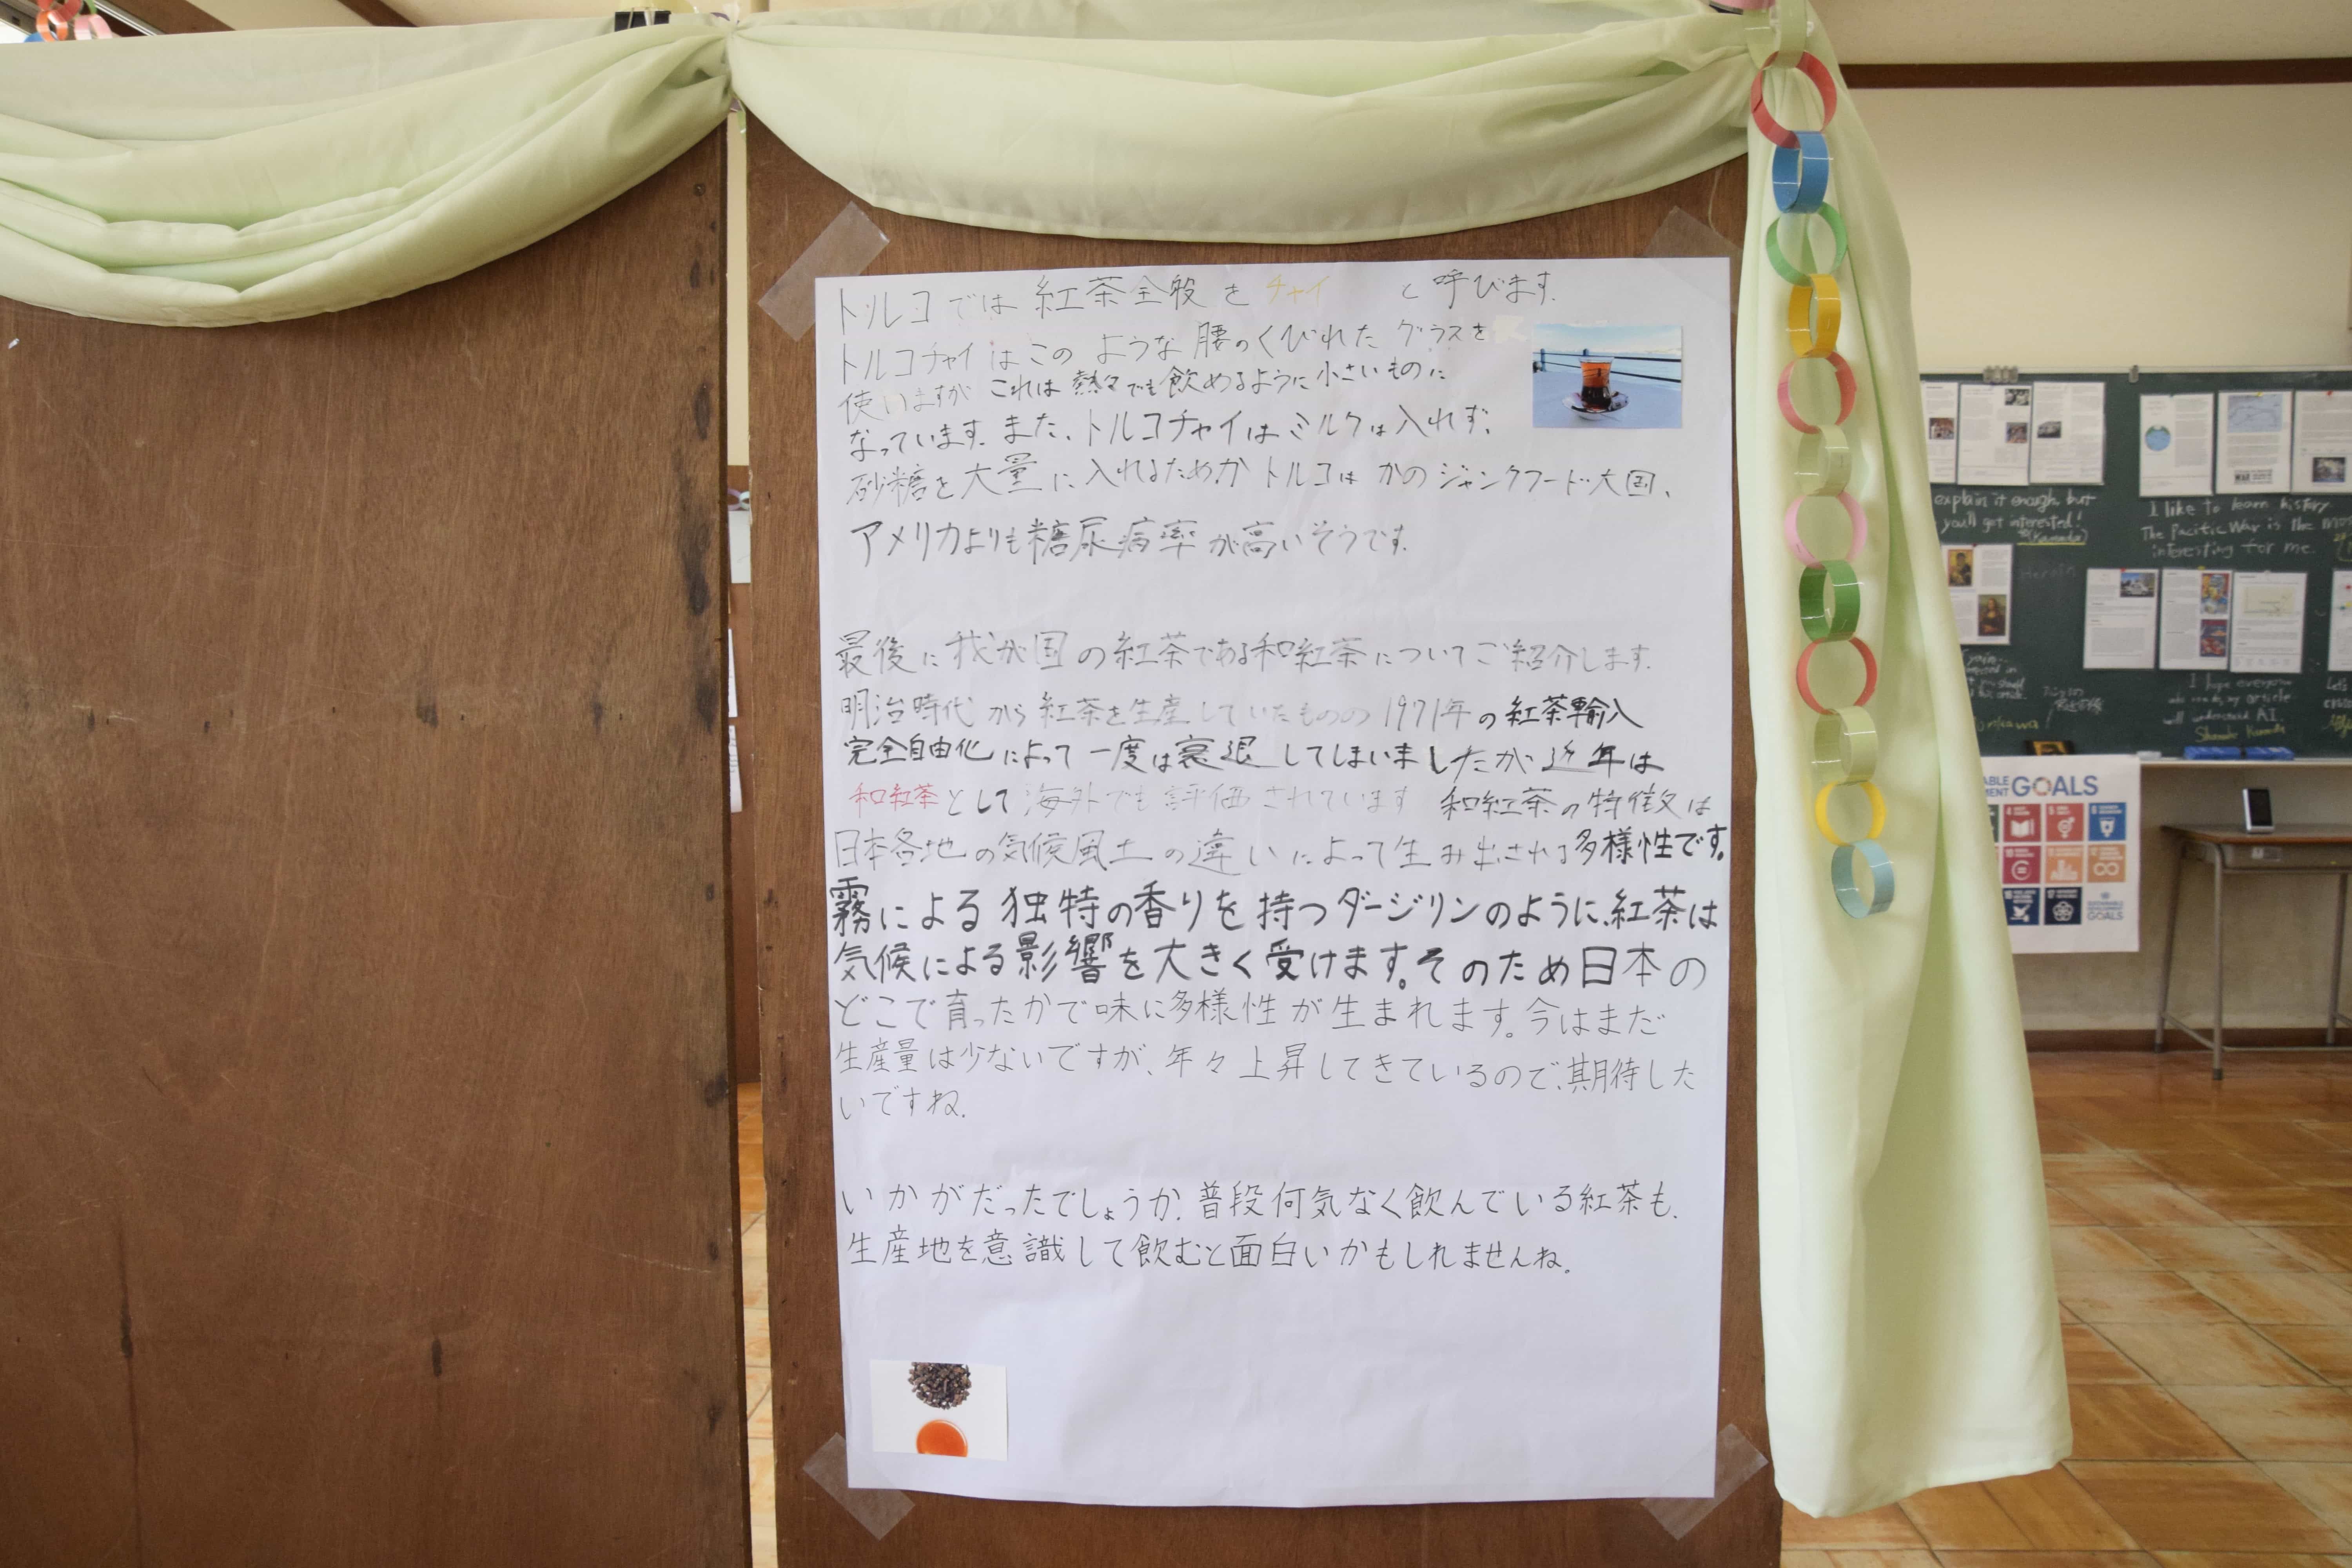 トルコでは紅茶全般をチャイ と呼びます.
トルコチャイはこのような腰のくびれたグラスを
使いますが これは熱々でも飲めるように小さいものに
なっています. また、トルコチャイはミルクは入れず、
砂糖を大量に入れるためか トルコは かのジャンクフード大国、
アメリカよりも糖尿病率が高いそうです.
最後に我が国の紅茶である和紅茶についてご紹介します.
明治時代から紅茶を生産していたものの1971年の紅茶輸入
完全自由化によって一度は衰退してしまいましたが近年は
和紅茶として海外でも評価されています 和紅茶の特徴は
日本各地の気候風土の違いによって生み出される多様性です。
霧による独特の香りを持つダージリンのように、紅茶は
気候による影響を大きく受けます。そのため日本の
どこで育ったかで味に多様性が生まれます。今はまだ
生産量は少ないですが、年々上昇してきているので、期待した
いですね.
いかがだったでしょうか. 普段何気なく飲んでいる紅茶も、
生産地を意識して飲むと面白いかもしれませんね。
explain it enough, but
you'll get interested!
(Kamada)
I like to learn history
The Pacific War is the
interesting for me.
I hope everyone
will understand AI.
GOALS